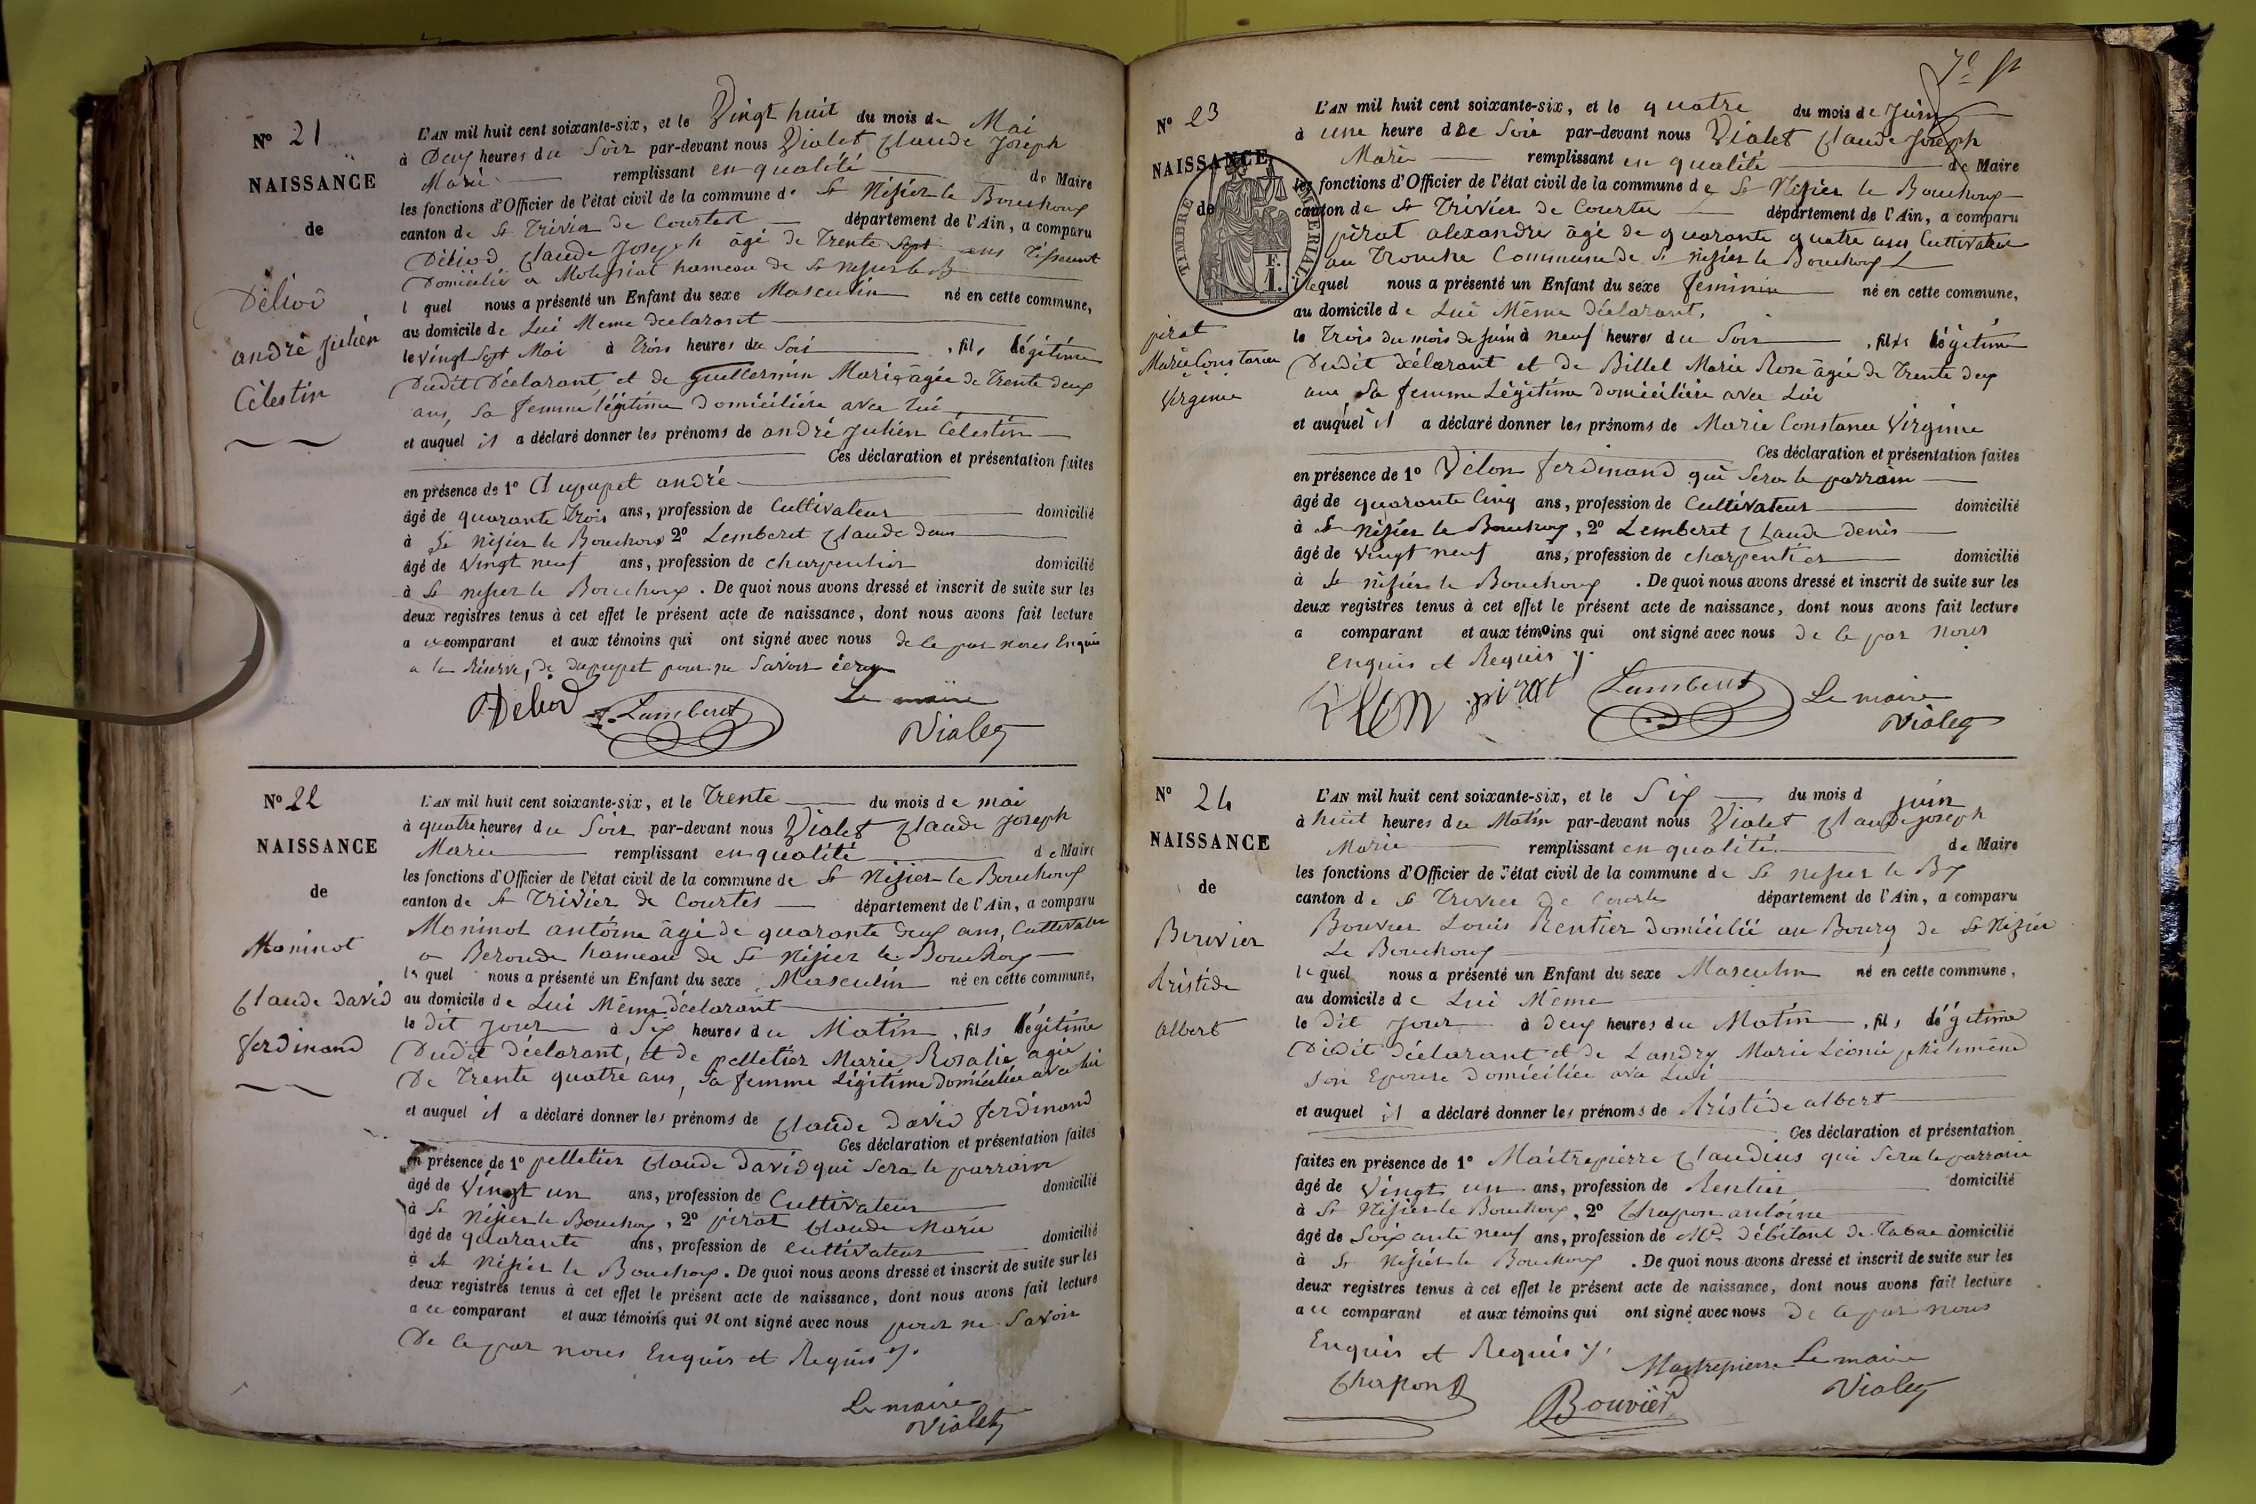 N° 21
NAISSANCE
de
Déliod
andré Julien
Célestin
L'AN mil huit cent soixante-six, et le Vingt huit du mois de Mai
à Deux heures du Soir par-devant nous Vialet Claude Joseph
Marie remplissant en qualité de Maire
les fonctions d'Officier de l'état civil de la commune de St Nisier le Bouchoux
canton de St Trivier de Courtes département de l'Ain, a comparu
Déliod Claude Joseph âgé de Trente Sept ans Tisserant
Domicilié a Molefriat hameau de St Nisier le B
l quel nous a présenté un Enfant du sexe Masculin né en cette commune,
au domicile de Lui Meme déclarant
le Vingt Sept Mai à Trois heures du Soir , fils légitime
Dudit Déclarant, et de Guillermin Marie, âgée de Trente deux
ans, Sa femme légitime Domiciliée avec lui
et auquel il a déclaré donner les prénoms de andré Julien Célestin
Ces déclaration et présentation faites
en présence de 1° Dupupet andré
âgé de quarante Trois ans, profession de Cultivateur domicilié
à St Nisier le Bouchoux 2° Lemberet Claude Denis
âgé de Vingt neuf ans, profession de charpentier domicilié
à St nisier le Bouchoux . De quoi nous avons dressé et inscrit de suite sur les
deux registres tenus à cet effet le présent acte de naissance, dont nous avons fait lecture
a ce comparant et aux témoins qui ont signé avec nous de ce par nous Enquis
a la Réserve, de dupupet pour ne Savoir écrire
Deliod Lamberet Le maire
Vialet
N° 22
NAISSANCE
de
Moninot
Claude David
ferdinand
L'AN mil huit cent soixante-six, et le Trente du mois de mai
à quatre heures du Soir par-devant nous Vialet Claude Joseph
Marie remplissant en qualité de Maire
les fonctions d'Officier de l'état civil de la commune de St Nisier le Bouchoux
canton de St Trivier de Courtes département de l'Ain, a comparu
Moninot antoine âgé de quarante deux ans, Cultivateur
a Beronde hameau de St Nisier le Bouchoux
le quel nous a présenté un Enfant du sexe Masculin né en cette commune,
au domicile de Lui Même déclarant
le dit Jour à Six heures du Matin , fils légitime
Dudit Déclarant, et de pelletier Marie Rosalie agée
De Trente quatre ans, Sa femme Légitime Domiciliée avec lui
et auquel il a déclaré donner les prénoms de Claude David ferdinand
Ces déclaration et présentation faites
en présence de 1° pelletier Claude David qui sera le parrain
âgé de Vingt un ans, profession de Cultivateur domicilié
à St Nisier le Bouchoux, 2° pirat Claude Marie
âgé de quarante ans, profession de cultivateur domicilié
à St Nisier le Bouchoux . De quoi nous avons dressé et inscrit de suite sur les
deux registres tenus à cet effet le présent acte de naissance, dont nous avons fait lecture
a ce comparant et aux témoins qui n ont signé avec nous pour ne Savoir
De ce par nous Enquis et Requis ./.
Le maire
Vialet
N° 23
NAISSANCE
de
TIMBRE IMPÉRIAL
1 F.
pirat
Marie Constance
Virginie
L'AN mil huit cent soixante-six, et le quatre du mois de Juin
à une heure d De Soir par-devant nous Vialet Claude Joseph
Marie remplissant en qualité de Maire
les fonctions d'Officier de l'état civil de la commune de St Nisier le Bouchoux
canton de St Trivier de Courtes département de l'Ain, a comparu
pirat alexandre âgé de quarante quatre ans Cultivateur
au Tronche Commune de St nisier le Bouchoux
lequel nous a présenté un Enfant du sexe féminin né en cette commune,
au domicile de Lui Même déclarant,
le Trois du mois de Juin à neuf heures du Soir , fille légitime
Dudit déclarant et de Billet Marie Rose âgée de Trente deux
ans Sa femme Légitime domiciliée avec Lui
et auquel il a déclaré donner les prénoms de Marie Constance Virginie
Ces déclaration et présentation faites
en présence de 1° Vélon ferdinand qui Sera le parrain
âgé de quarante Cinq ans, profession de Cultivateur domicilié
à St Nisier le Bouchoux, 2° Lemberet Claude denis
âgé de Vingt neuf ans, profession de charpentier domicilié
à St nisier le Bouchoux . De quoi nous avons dressé et inscrit de suite sur les
deux registres tenus à cet effet le présent acte de naissance, dont nous avons fait lecture
a comparant et aux témoins qui ont signé avec nous de ce par nous
Enquis et Requis ./.
pirat Lamberet Le maire
Vialet
N° 24
NAISSANCE
de
Bouvier
Aristide
albert
L'AN mil huit cent soixante-six, et le Six du mois d juin
à huit heures du Matin par-devant nous Vialet Claude Joseph
Marie remplissant en qualité de Maire
les fonctions d'Officier de l'état civil de la commune de St nisier le Bx
canton de St Trivier de Courtes département de l'Ain, a comparu
Bouvier Louis Rentier domicilié au Bourg de St Nizier
Le Bouchoux
lequel nous a présenté un Enfant du sexe Masculin né en cette commune,
au domicile de Lui Même
le dit Jour à deux heures du Matin , fils légitime
Dudit déclarant et de Landry Marie Léonie philomène
Son Epouse Domiciliée avec Lui
et auquel il a déclaré donner les prénoms de Aristide albert
Ces déclaration et présentation
faites en présence de 1° Maitrepierre Claudius qui sera le parrain
âgé de Vingt un ans, profession de Rentier domicilié
à St Nisier le Bouchoux, 2° Chapon antoine
âgé de Soixante neuf ans, profession de Md débitant de Tabac domicilié
à St Nisier le Bouchoux . De quoi nous avons dressé et inscrit de suite sur les
deux registres tenus à cet effet le présent acte de naissance, dont nous avons fait lecture
a ce comparant et aux témoins qui ont signé avec nous de ce par nous
Enquis et Requis ./.
Maitrepierre Le maire
Chapon Bouvier Vialet